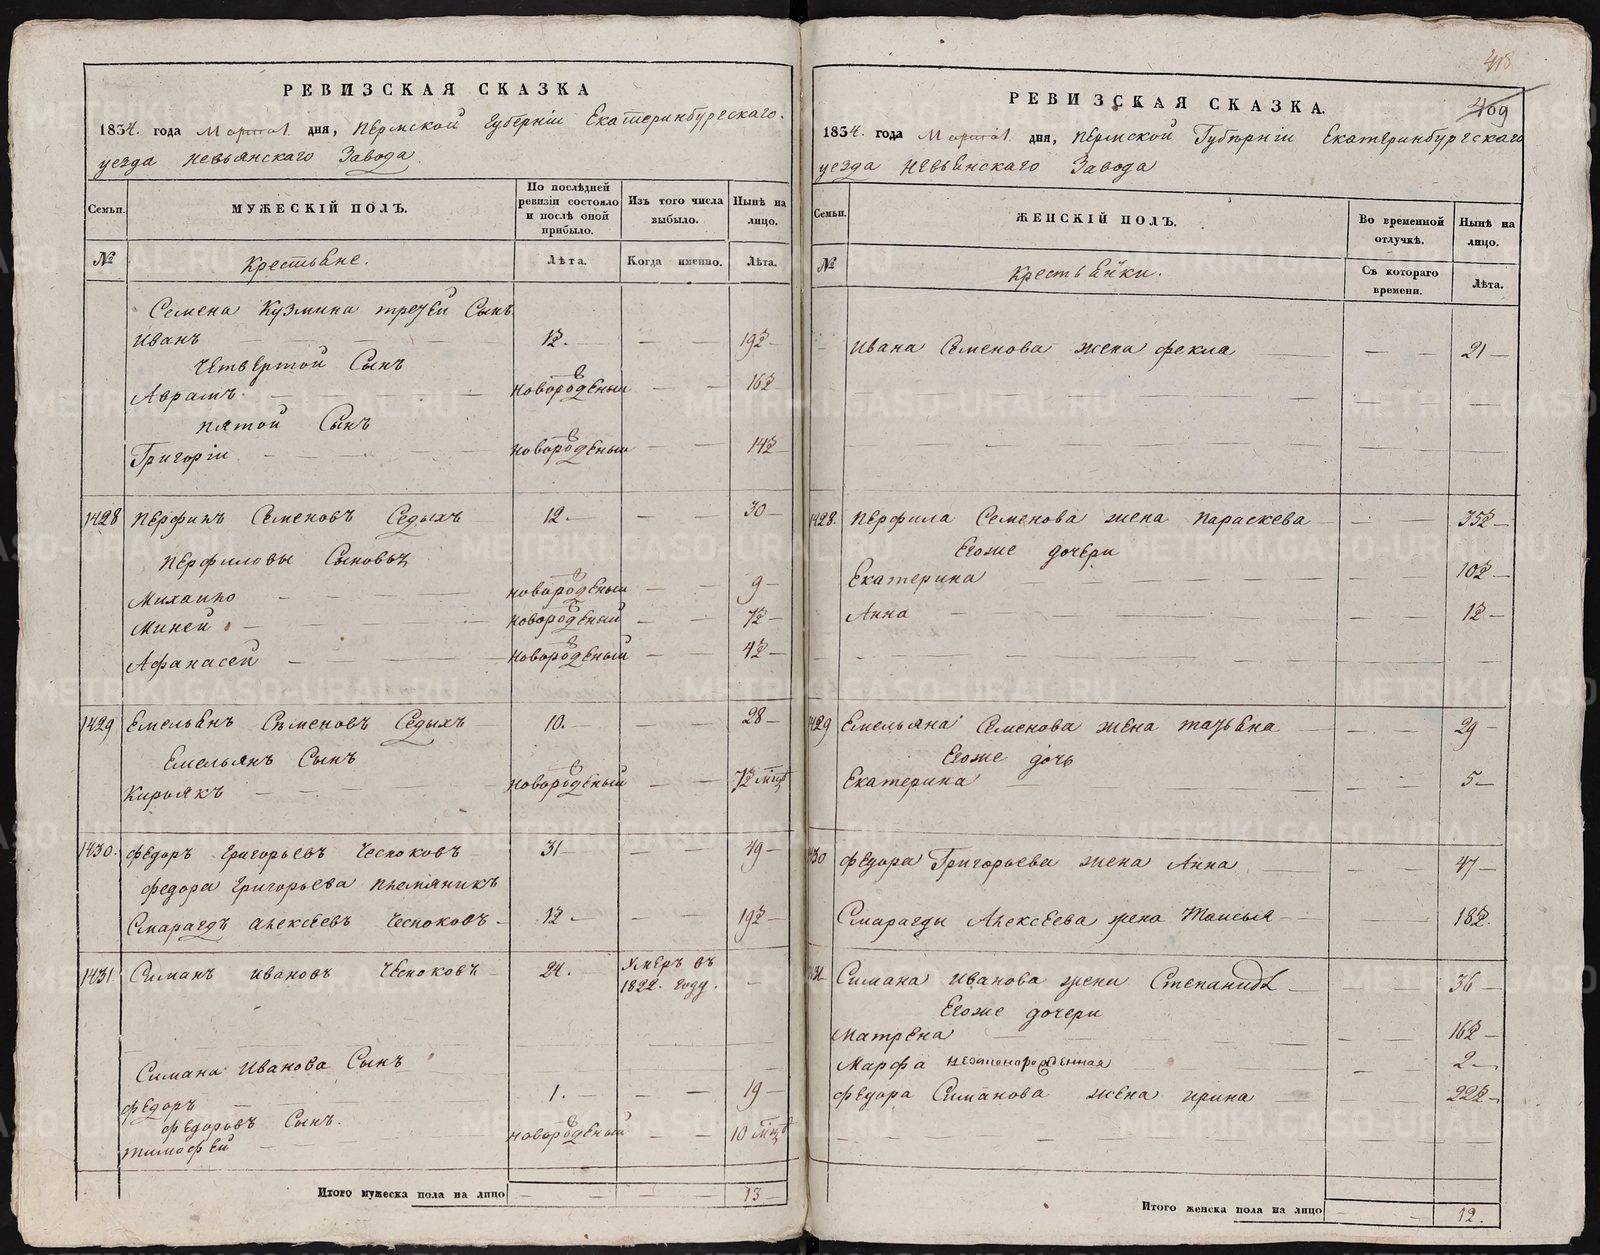 РЕВИЗСКАЯ СКАЗКА
1834. года Марта 1 дня, Пермской Губерніи Екатеринбургскаго.
уезда Невьянскаго Завода
Семьи. МУЖЕСКІЙ ПОЛЪ. По послѣдней ревизіи состояло и послѣ оной прибыло. Изъ того числа выбыло. Нынѣ на лицо.
№ Крестьяне. Лѣта. Когда именно. Лѣта.
Семена Кузмина третей Сынъ
Иванъ 1½. 19½
Четвертой Сынъ
Аврамъ новорожденый 16½
пятой Сынъ
Григоріи новорожденый 14½
1428 Перфилъ Семеновъ Седыхъ 12. 30
Перфиловы Сыновья
Михаило новорожденый 9
Миней новорожденый 7½
Афанасей новорожденый 4½
1429 Емельянъ Семеновъ Седыхъ 10. 28
Емельянъ Сынъ
Кирьякъ новорожденый 7½ мцъ
1430. Федоръ Григорьевъ Чесноковъ 31 49
Федора Григорьева племяникъ
Смарагдъ Алексеевъ Чесноковъ 1½ 19½
1431. Симанъ Ивановъ Чесноковъ 24. Умеръ въ
1822. году.
Симана Иванова Сынъ
Федоръ 1. 19
Федоровъ Сынъ.
Тимофей новорожденый 10 мцъ
Итого мужеска пола на лицо 13
418
409
РЕВИЗСКАЯ СКАЗКА.
1834. года Марта 1 дня, Пермской Губерніи Екатеринбургскаго
уезда Невьянскаго Завода
Семьи. ЖЕНСКІЙ ПОЛЪ. Во временной отлучкѣ. Нынѣ на лицо.
№ Крестьянки. Съ котораго времени. Лѣта.
Ивана Семенова жена Фекла 21
1428. Перфила Семенова жена Параскева 35½
Егоже дочери
Екатерина 10½
Анна 1½
1429 Емельяна Семенова жена Татьяна 29
Егоже дочь
Екатерина 5
1430 Федора Григорьева жена Анна 47
Смарагды Алексеева жена Таисья 18½
1431 Симана Иванова жена Степанида 36
Егоже дочери
Матрена 16½
Марфа незаконорожденная 2
Федора Симанова жена Ирина 22½
Итого женска пола на лицо 12.
METRIKI.GASO-URAL.RU